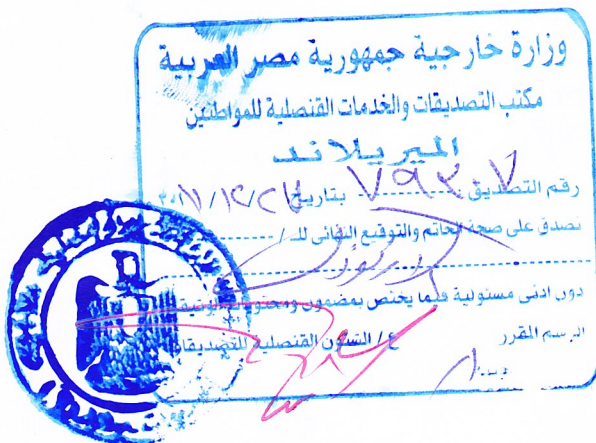 وزارة خارجية جمهورية مصر العربية
مكتب التصديقات والخدمات القنصلية للمواطنين
الميريلاند
رقم التصديق ٧٩٣٠٧ بتاريخ ٢٠١١/١٢/٢٧
نصدق على صحة الخاتم والتوقيع النهائى للـ /
دون ادنى مسئولية فيما يختص بمضمون ومحتوى الوثيقة
الرسم المقرر
ع / الشئون القنصلية للتصديقات